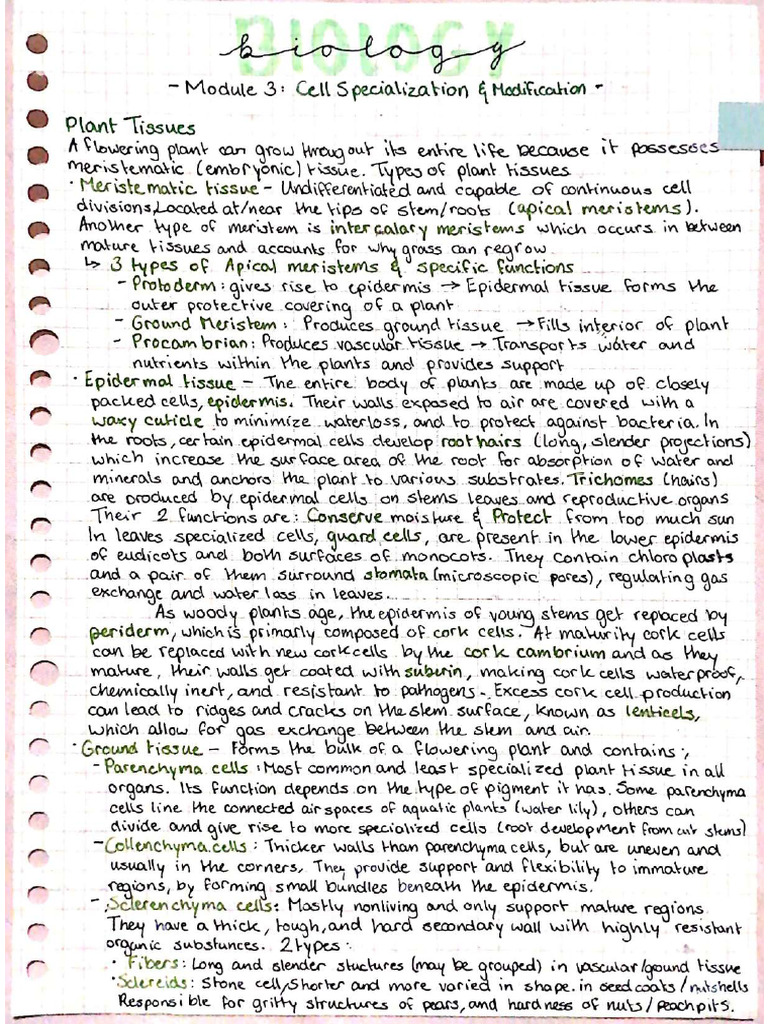 BIOLOGY
biology
- Module 3: Cell Specialization & Modification -
Plant Tissues
A flowering plant can grow througout its entire life because it possesses
meristematic (embryonic) tissue. Types of plant tissues
· Meristematic tissue - Undifferentiated and capable of continuous cell
divisions, Located at/near the tips of stem/roots (apical meristems).
Another type of meristem is intercalary meristems which occurs in between
mature tissues and accounts for why grass can regrow.
↳ 3 types of Apical meristems & specific functions
- Protoderm: gives rise to epidermis → Epidermal tissue forms the
outer protective covering of a plant
- Ground Meristem: Produces ground tissue → Fills interior of plant
- Procambrian: Produces vascular tissue → Transports water and
nutrients within the plants and provides support
· Epidermal tissue - The entire body of plants are made up of closely
packed cells, epidermis. Their walls exposed to air are covered with a
waxy cuticle to minimize waterloss, and to protect against bacteria. In
the roots, certain epidermal cells develop root hairs (long, slender projections)
which increase the surface area of the root for absorption of water and
minerals and anchors the plant to various substrates. Trichomes (hairs)
are produced by epidermal cells on stems leaves and reproductive organs
Their 2 functions are: Conserve moisture & Protect from too much sun
In leaves specialized cells, guard cells, are present in the lower epidermis
of eudicots and both surfaces of monocots. They contain chloroplasts
and a pair of them surround stomata (microscopic pores), regulating gas
exchange and water loss in leaves.
As woody plants age, the epidermis of young stems get replaced by
periderm, which is primarly composed of cork cells. At maturity cork cells
can be replaced with new cork cells by the cork cambrium and as they
mature, their walls get coated with suberin, making cork cells waterproof,
chemically inert, and resistant to pathogens. Excess cork cell production
can lead to ridges and cracks on the stem surface, known as lenticels,
which allow for gas exchange between the stem and air.
· Ground tissue - Forms the bulk of a flowering plant and contains:,
- Parenchyma cells: Most common and least specialized plant tissue in all
organs. Its function depends on the type of pigment it has. Some parenchyma
cells line the connected air spaces of aquatic plants (water lily), others can
divide and give rise to more specialized cells (root development from cut stems)
- Collenchyma cells: Thicker walls than parenchyma cells, but are uneven and
usually in the corners. They provide support and flexibility to immature
regions, by forming small bundles beneath the epidermis.
- Sclerenchyma cells: Mostly nonliving and only support mature regions.
They have a thick, tough, and hard secondary wall with highly resistant
organic substunces. 2 types:
· Fibers: Long and slender stuctures (may be grouped) in vascular/gound tissue
· Sclereids: Stone cell, Shorter and more varied in shape. in seed coats/nutshells
Responsible for gritty structures of pears, and hardness of nuts/peach pits.